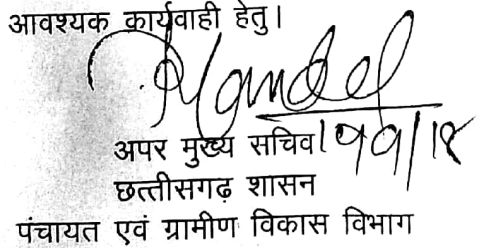 आवश्यक कार्यवाही हेतु।
अपर मुख्य सचिव
छत्तीसगढ़ शासन
पंचायत एवं ग्रामीण विकास विभाग